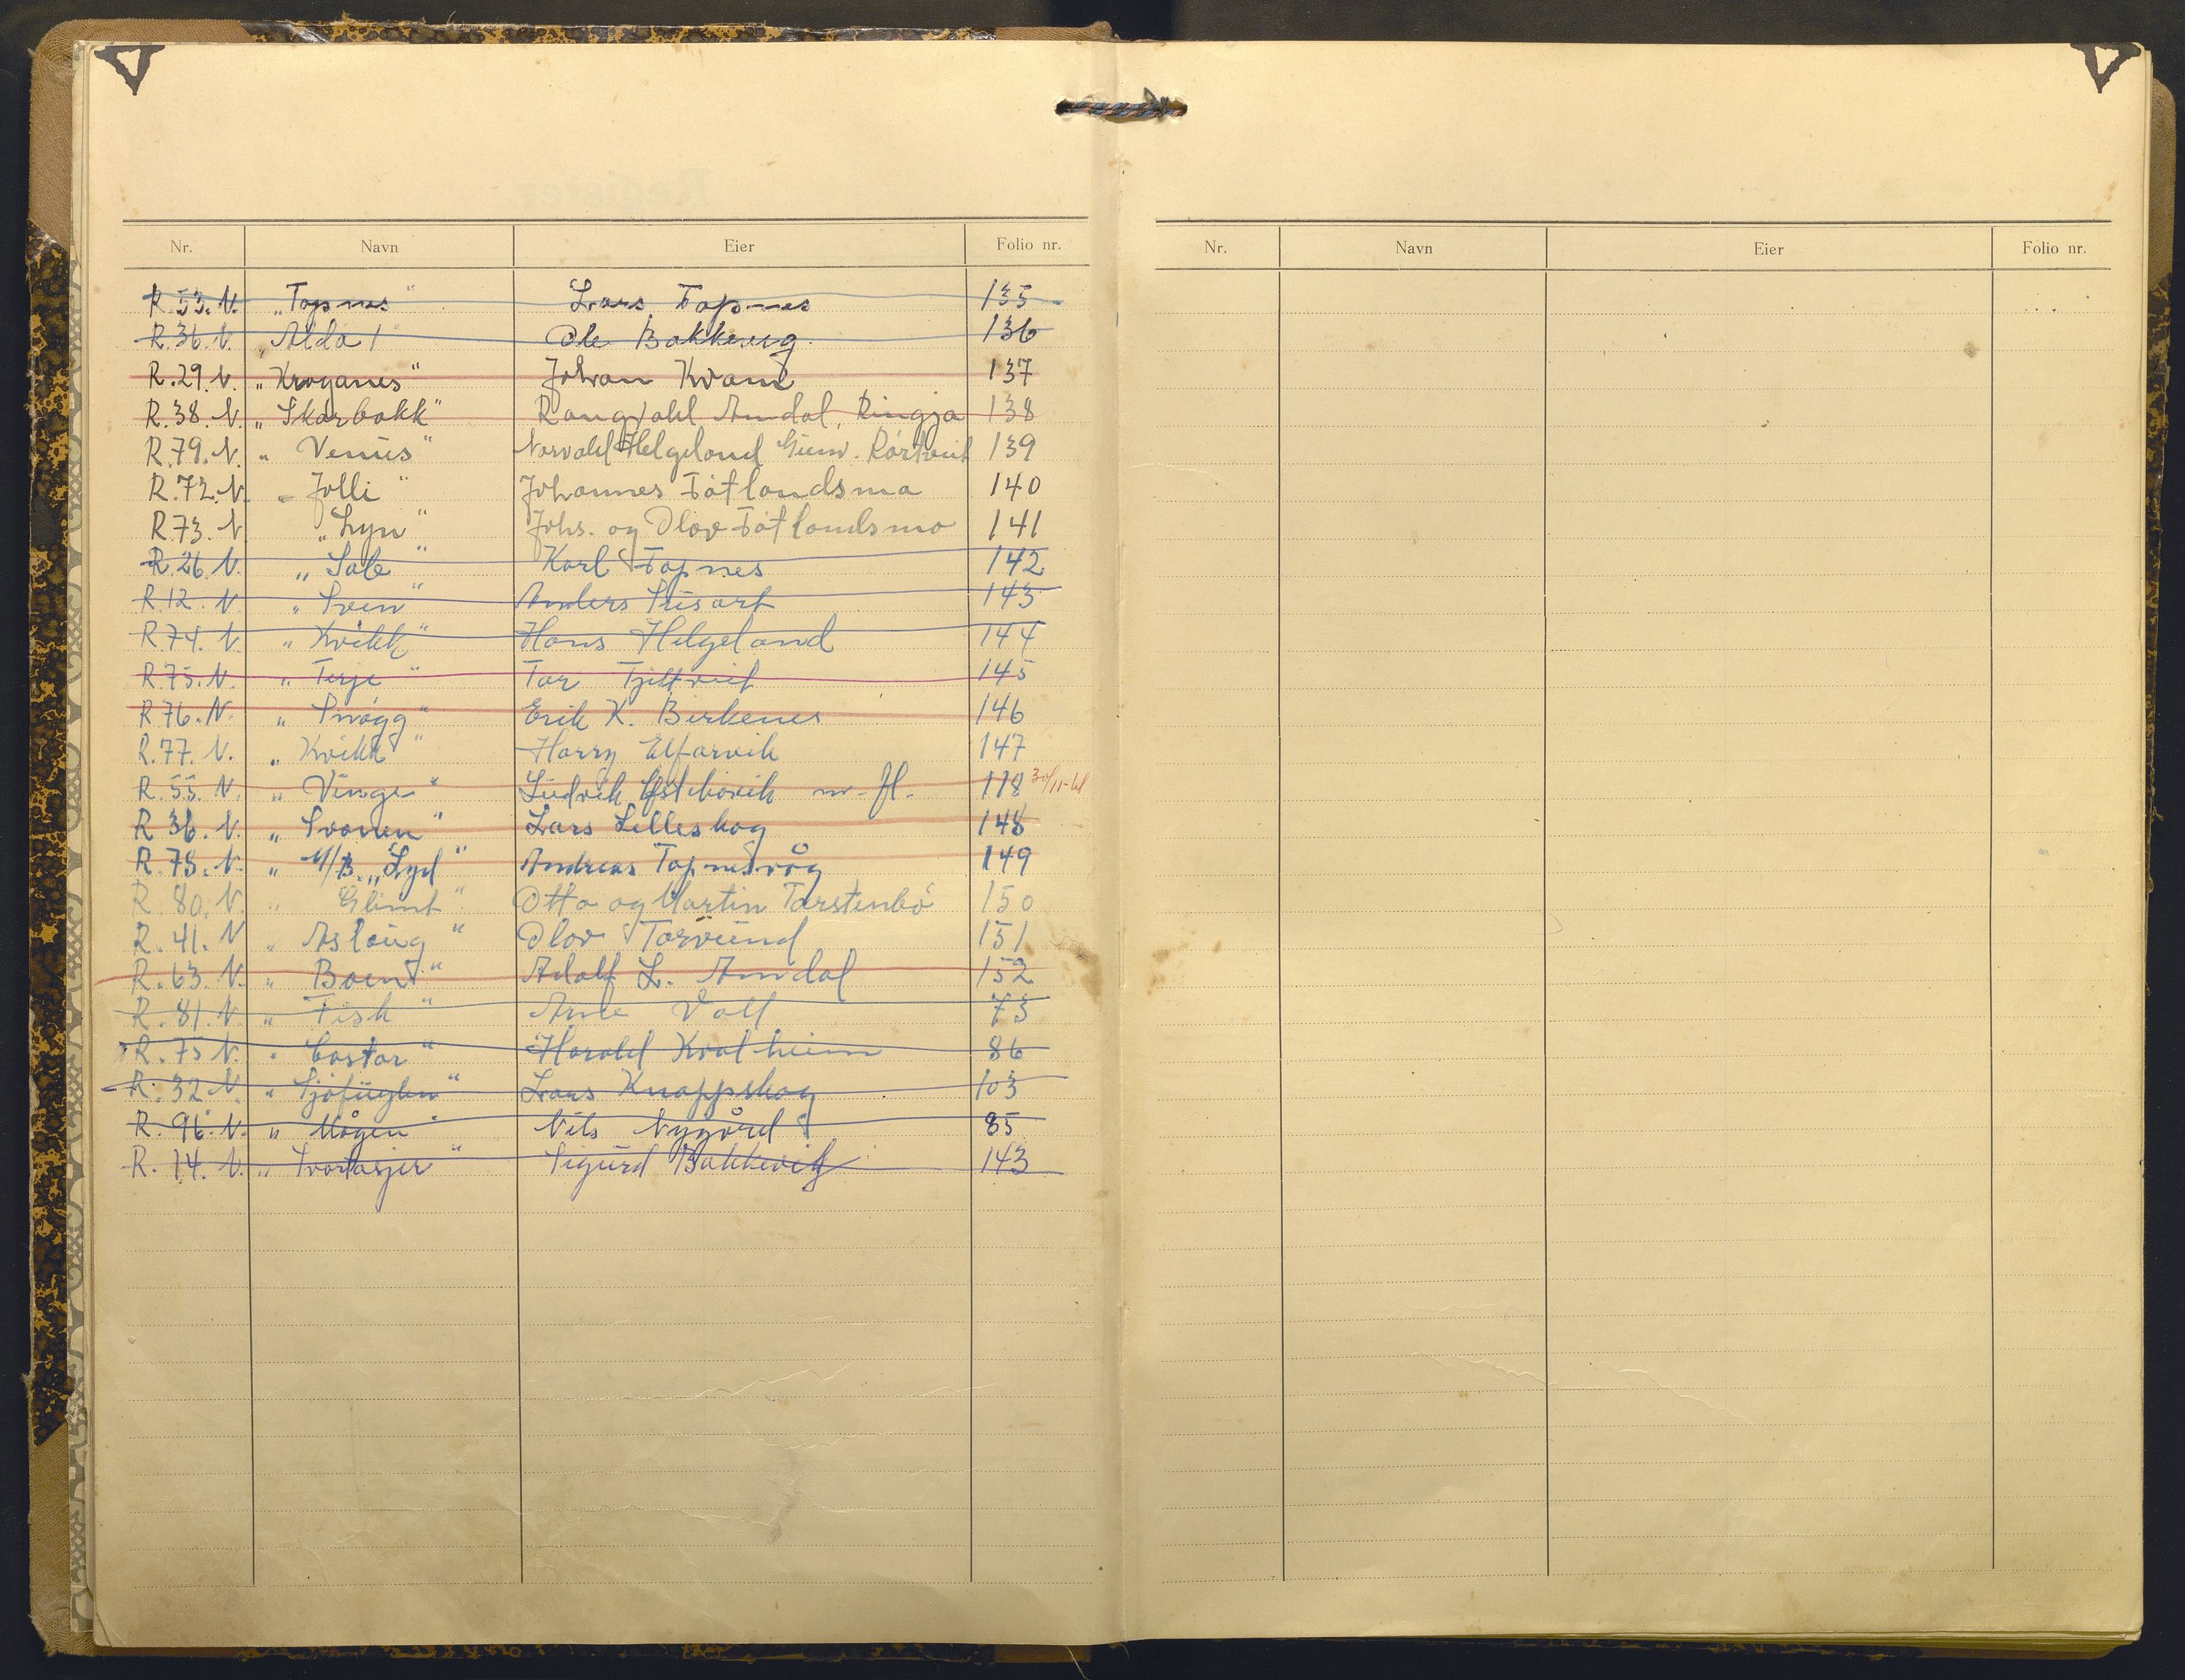 Nr. Navn Eier Folio nr.
R. 53. N. „Topnes" Lars Topnes 135
R. 36. N. „Alda 1 Ole Bakkevig. 136
R. 29. N. „Kroganes" Johan Kvame 137
R. 38. N. „Skarbakk" Rangvald Amdal, Ringja 138
R. 79. N. „Venus" Norvald Helgeland Gunv. Rørtveit 139
R. 72. N. „Jolli" Johannes Fatlandsmo 140
R. 73. N „Lyn" Johs. og Olov Fatlandsmo 141
R. 26. N. „Sole" Karl Topnes 142
R. 12. N „Svein" Anders 143
R. 74. N. „Kvikk" Hans Helgeland 144
R. 75. N. „Terje" Tor Tjeltveit 145
R. 76. N. „Snøgg" Erik K. Birkenes 146
R. 77. N. „Kvikk" Harry Elfarvik 147
R. 55. N. „Vinge" Ludvik m. fl. 118 30/11-61
R 36. N. „Svanen" Lars Lilleskog 148
R. 78. N. „M/B. „Lyd" Andreas Topnesvåg 149
R. 80. N. „Glimt" Otto og Martin Torstenbø 150
R. 41. N „Aslaug" Olov Torvund 151
R. 63. N. „Boen" Adolf L. Amdal 152
R. 81. N. „Fisk" Arne Voll 73
R. 75 N. „Castor" Harald Kvalheim 86
R. 32 N. „Sjøfuglen" Lars Knappskog 103
R. 96. N. „Mågen" Nils Nygård 85
R. 14. N. „Svartasjer" Sigurd Bakkevig 143
Nr. Navn Eier Folio nr.